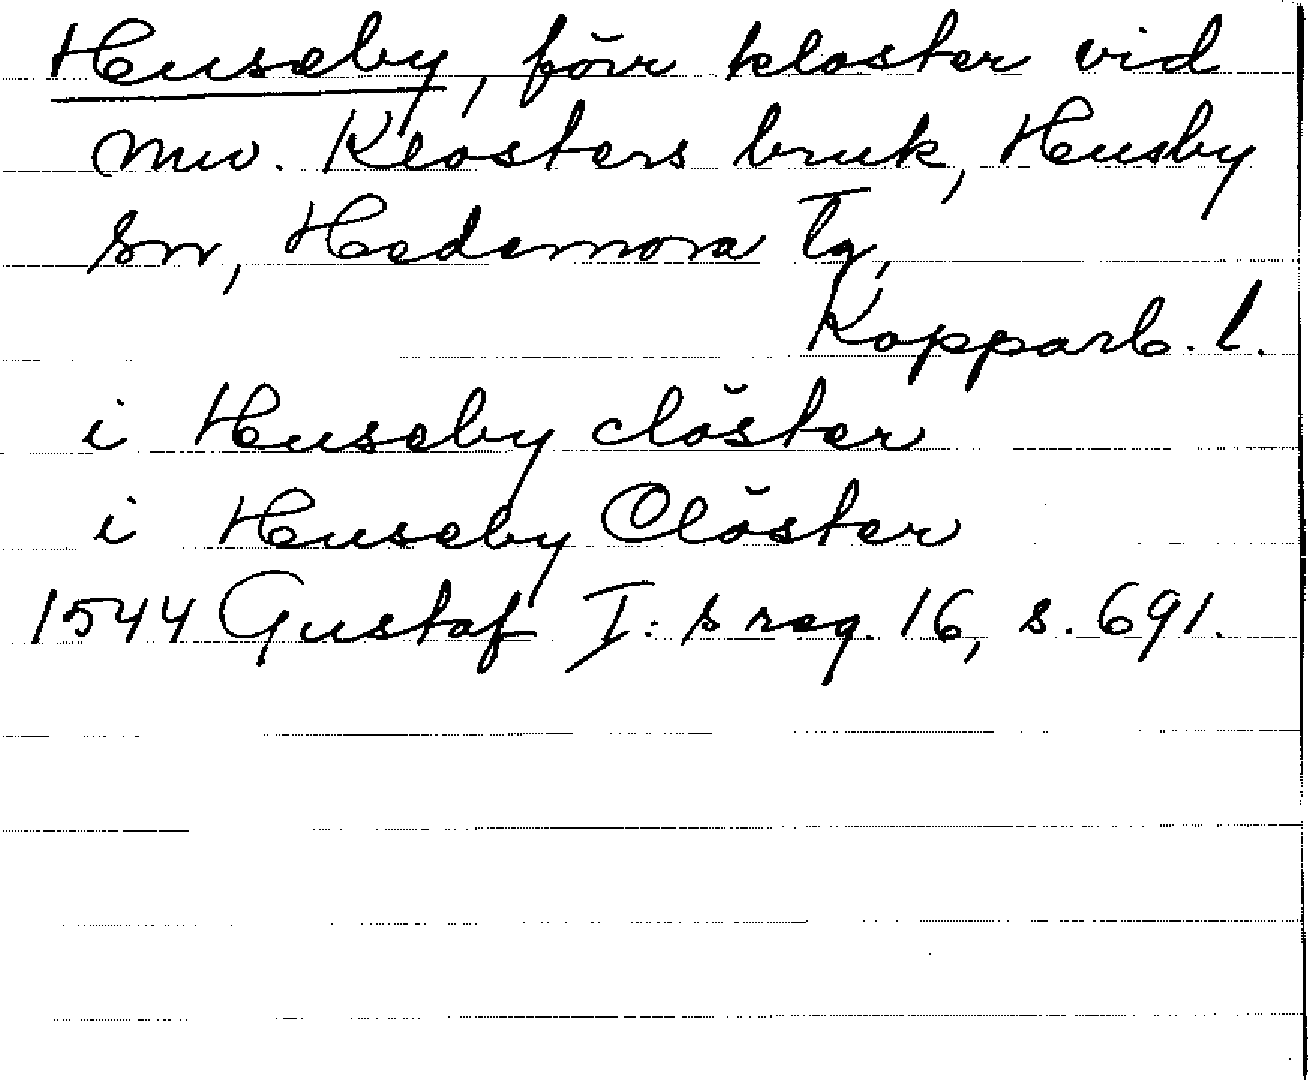 Huseby, förr kloster vid
nuv. Klosters bruk, Husby
sn, Hedemora Tg,
Kopparb. l.
i Huseby clöster
i Huseby Clöster
1544 Gustaf I:s reg. 16, s. 691.